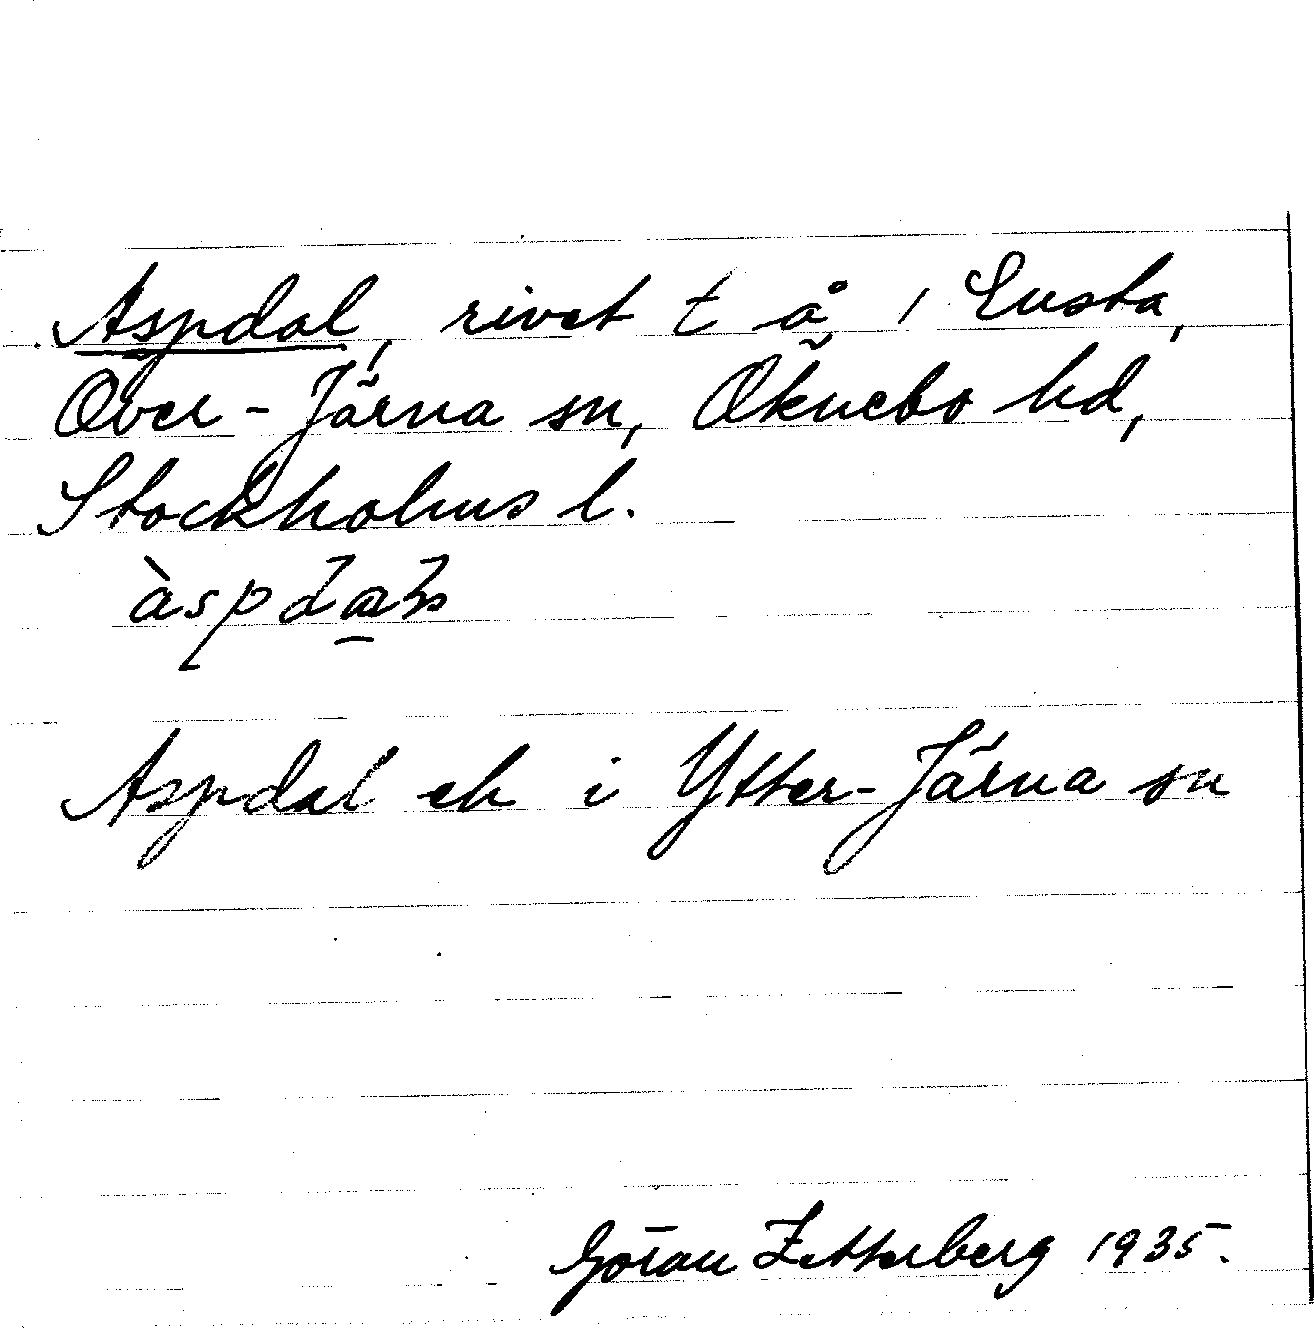 Aspdal, rivet t å, i Eusta,
Över-Järna sn, Öknebo hd,
Stockholms l.
Aspdal eh i Ytter-Järna sn
Göran Zetterberg 1935.